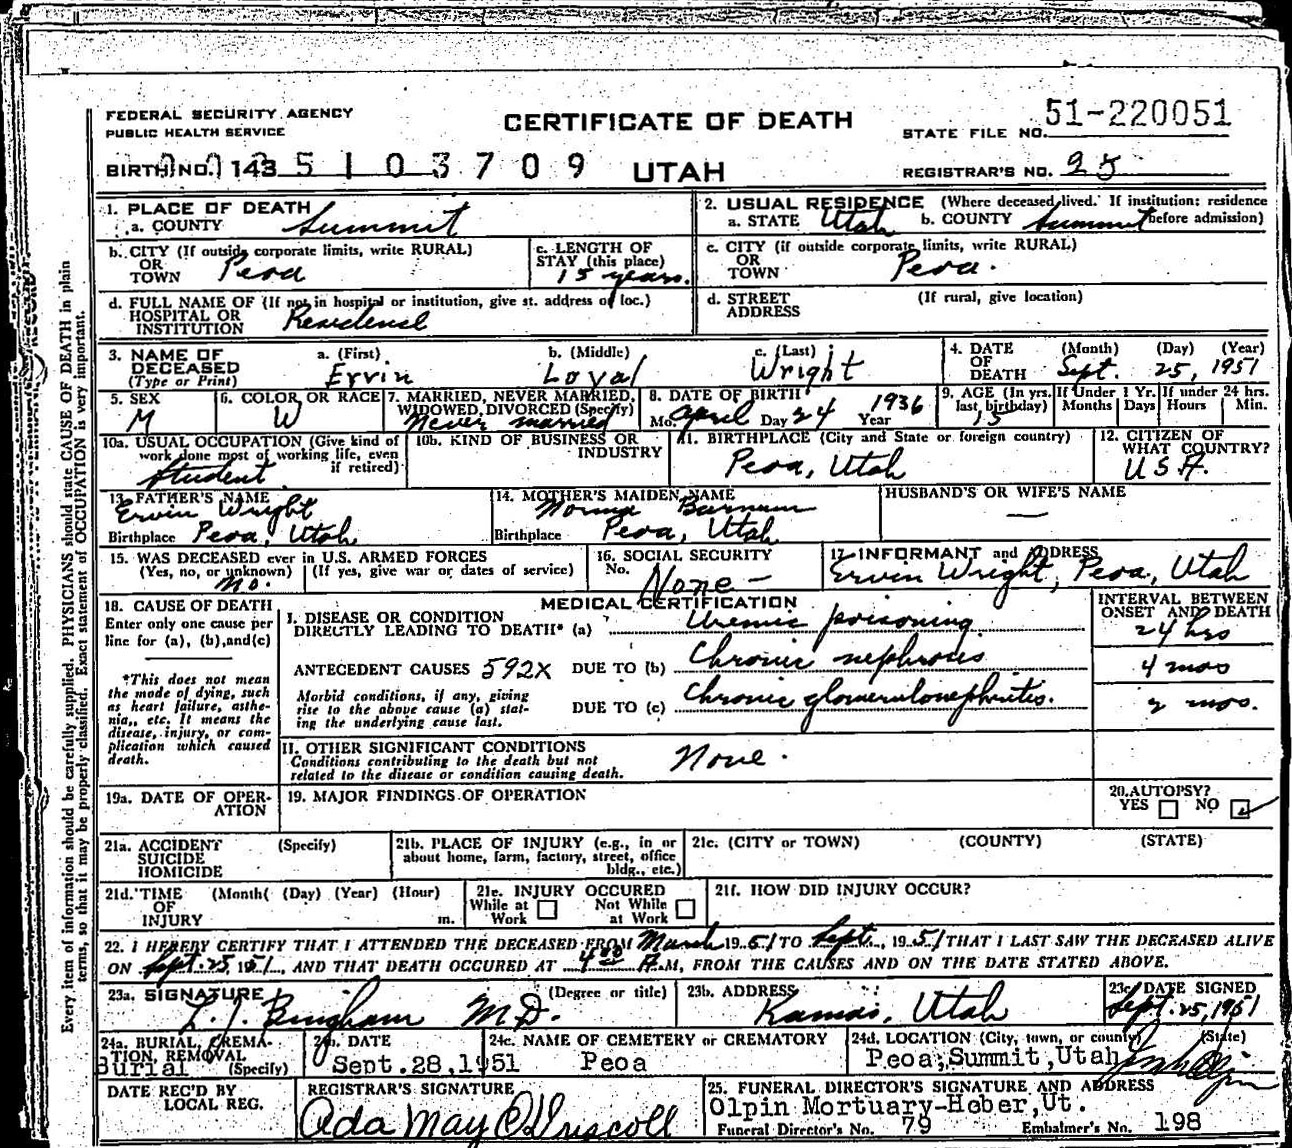 FEDERAL SECURITY AGENCY
PUBLIC HEALTH SERVICE
CERTIFICATE OF DEATH
STATE FILE NO. 51-220051
BIRTH NO. 143 5 1 0 3 7 0 9
UTAH
REGISTRAR'S NO. 25
1. PLACE OF DEATH
a. COUNTY Summit
2. USUAL RESIDENCE (Where deceased lived. If institution: residence before admission)
a. STATE Utah b. COUNTY Summit
b. CITY (If outside corporate limits, write RURAL) OR TOWN Peoa
c. LENGTH OF STAY (this place) 15 years.
c. CITY (if outside corporate limits, write RURAL) OR TOWN Peoa.
d. FULL NAME OF (If not in hospital or institution, give st. address or loc.) HOSPITAL OR INSTITUTION
d. STREET ADDRESS (If rural, give location)
3. NAME OF DECEASED (Type or Print)
a. (First) Ervin
b. (Middle) Loyal
c. (Last) Wright
4. DATE OF DEATH (Month) (Day) (Year) Sept. 25, 1951
5. SEX M
6. COLOR OR RACE W
7. MARRIED, NEVER MARRIED, WIDOWED, DIVORCED (Specify) Never married
8. DATE OF BIRTH Mo. April Day 24 Year 1936
9. AGE (In yrs. last birthday) 15
If Under 1 Yr. Months Days
If under 24 hrs. Hours Min.
10a. USUAL OCCUPATION (Give kind of work done most of working life, even if retired) Student
10b. KIND OF BUSINESS OR INDUSTRY
11. BIRTHPLACE (City and State or foreign country) Peoa, Utah
12. CITIZEN OF WHAT COUNTRY? USA.
13. FATHER'S NAME Ervin Wright
Birthplace Peoa, Utah
14. MOTHER'S MAIDEN NAME Norma Barnum
Birthplace Peoa, Utah
HUSBAND'S OR WIFE'S NAME —
15. WAS DECEASED ever in U.S. ARMED FORCES
(Yes, no, or unknown) (If yes, give war or dates of service)
No.
16. SOCIAL SECURITY No. None –
17. INFORMANT and ADDRESS
Ervin Wright, Peoa, Utah
18. CAUSE OF DEATH
Enter only one cause per line for (a), (b), and (c)
MEDICAL CERTIFICATION
INTERVAL BETWEEN ONSET AND DEATH
I. DISEASE OR CONDITION DIRECTLY LEADING TO DEATH* (a) Uremic poisoning. 24 hrs
ANTECEDENT CAUSES 592X DUE TO (b) Chronic nephrosis 4 mos
Morbid conditions, if any, giving rise to the above cause (a) stating the underlying cause last.
DUE TO (c) Chronic glomerulonephrites. mos.
*This does not mean the mode of dying, such as heart failure, asthenia, etc. It means the disease, injury, or complication which caused death.
II. OTHER SIGNIFICANT CONDITIONS
Conditions contributing to the death but not related to the disease or condition causing death.
None.
19a. DATE OF OPERATION
19. MAJOR FINDINGS OF OPERATION
20. AUTOPSY?
YES NO
21a. ACCIDENT SUICIDE HOMICIDE (Specify)
21b. PLACE OF INJURY (e.g., in or about home, farm, factory, street, office bldg., etc.)
21c. (CITY OR TOWN) (COUNTY) (STATE)
21d. TIME OF INJURY (Month) (Day) (Year) (Hour) m.
21e. INJURY OCCURED
While at Work Not While at Work
21f. HOW DID INJURY OCCUR?
22. I HEREBY CERTIFY THAT I ATTENDED THE DECEASED FROM March 1951 TO Sept., 1951 THAT I LAST SAW THE DECEASED ALIVE
ON Sept. 25, 1951, AND THAT DEATH OCCURED AT 4 00 A.M, FROM THE CAUSES AND ON THE DATE STATED ABOVE.
23a. SIGNATURE (Degree or title)
Bingham M.D.
23b. ADDRESS Kamas, Utah
23c. DATE SIGNED Sept. 25, 1951
24a. BURIAL, CREMATION, REMOVAL (Specify) Burial
24b. DATE Sept. 28, 1951
24c. NAME OF CEMETERY or CREMATORY Peoa
24d. LOCATION (City, town, or county) (State)
Peoa, Summit, Utah
DATE REC'D BY LOCAL REG.
REGISTRAR'S SIGNATURE
Ada May O'Driscoll
25. FUNERAL DIRECTOR'S SIGNATURE AND ADDRESS
Olpin Mortuary-Heber, Ut.
Funeral Director's No. 79 Embalmer's No. 198
Every item of information should be carefully supplied. PHYSICIANS should state CAUSE OF DEATH in plain
terms, so that it may be properly classified. Exact statement of OCCUPATION is very important.